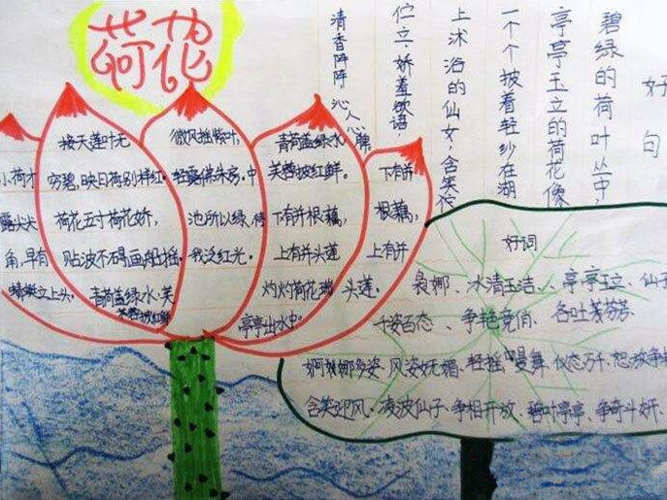 荷花
小荷才
露尖尖
角,早有
蜻蜓立上头。
接天莲叶无
穷碧,映日荷别样红。
荷花五寸荷花娇,
贴波不碍画船摇。
青荷盖绿水,芙
蓉披红鲜
微风摇紫叶,
轻露拂朱房,中
池所以绿,待
我泛红光。
青荷盖绿水
芙蓉披红鲜。
下有并根藕,
上有并头莲
灼灼荷花瑞,
亭亭出水中。
下有并
根藕,
上有并
头莲。
好句
碧绿的荷叶丛中,
亭亭玉立的荷花像
一个个披着轻纱在湖
上沐浴的仙女,含笑伫
伫立,娇羞欲语
清香阵阵 沁人心脾
好词
袅娜、冰清玉洁、亭亭玉立、仙
千姿百态、争艳竞俏、各吐芬芳
婀娜多姿、风姿妩媚、轻摇曼舞、仪态万千、怒放争
含笑迎风、凌波仙子、争相开放、碧叶亭亭、争奇斗妍